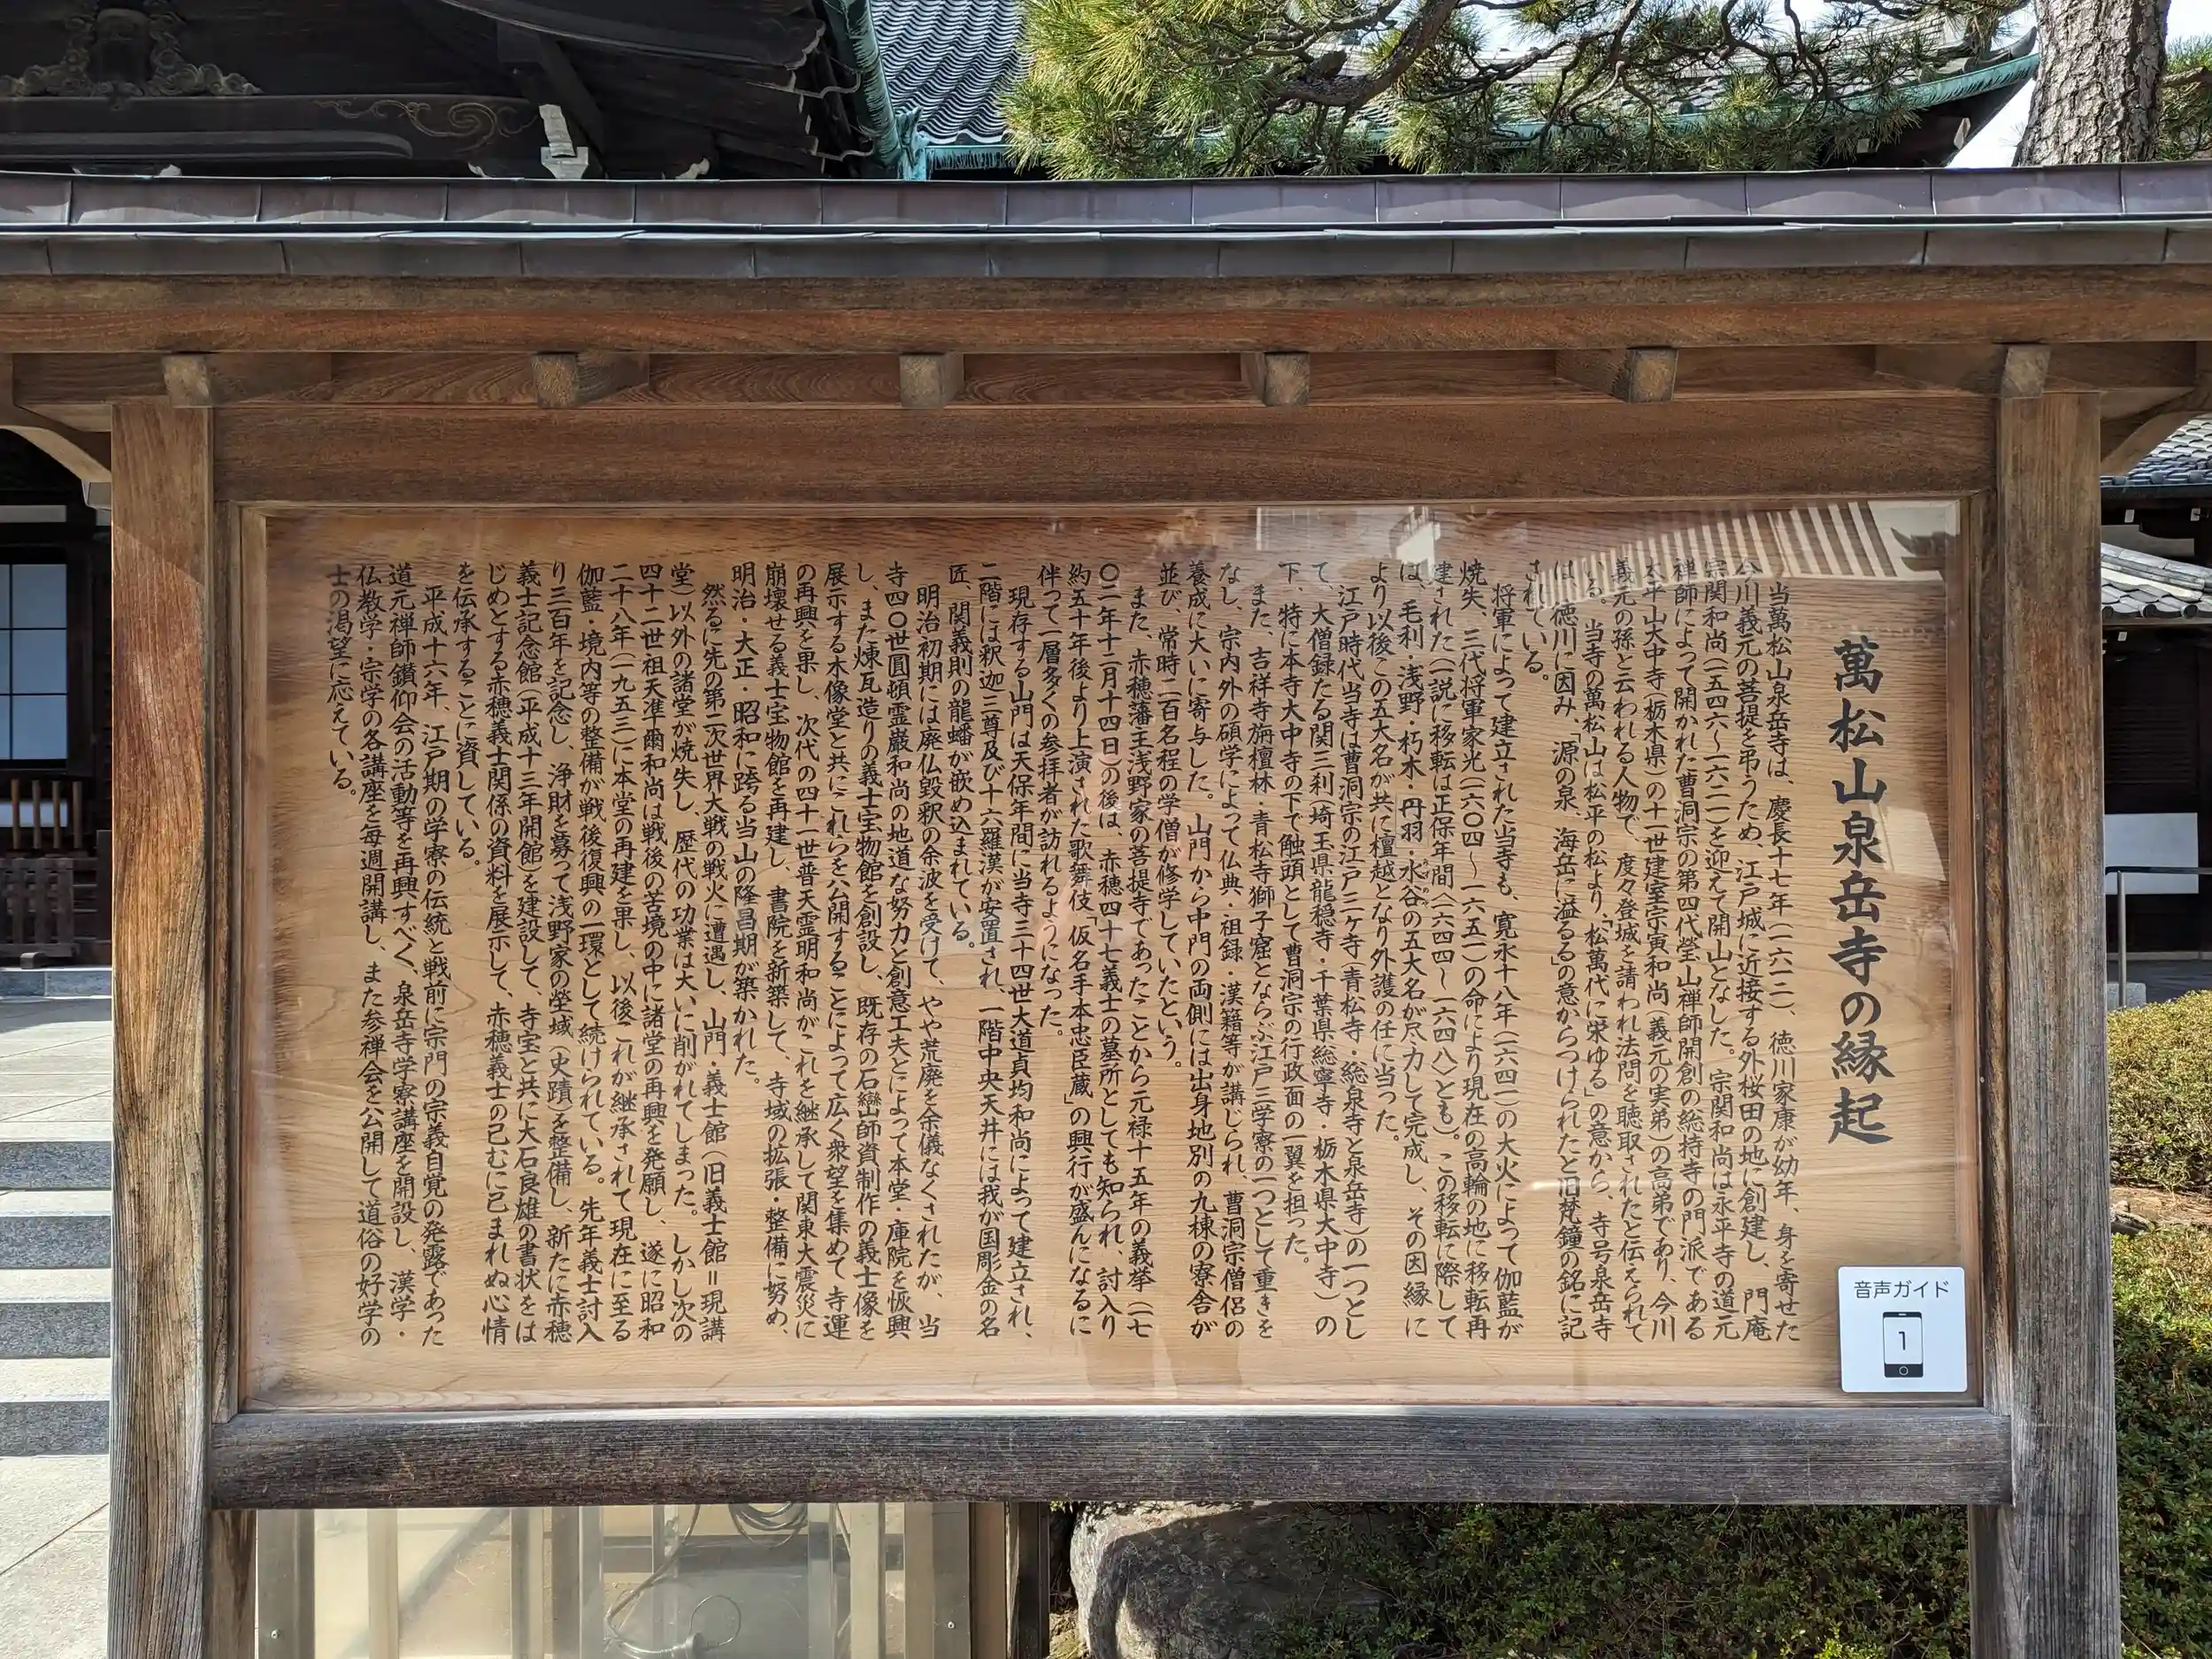 萬松山泉岳寺の縁起
当萬松山泉岳寺は、慶長十七年(一六一二)、徳川家康が幼年、身を寄せた
今川義元の菩提を弔うため、江戸城に近接する外桜田の地に創建し、門庵
宗関和尚(一五四六〜一六二一)を迎えて開山となした。宗関和尚は永平寺の道元
禅師によって開かれた曹洞宗の第四代瑩山禅師開創の総持寺の門派である
太平山大中寺(栃木県)の十一世建室宗寅和尚(義元の実弟)の高弟であり、今川
義元の孫と云われる人物で、度々登城を請われ法問を聴取されたと伝えられて
いる。当寺の萬松山は松平の松より、「松萬代に栄ゆる」の意から、寺号泉岳寺
は、徳川に因み、「源の泉、海岳に溢るる」の意からつけられたと旧梵鐘の銘に記
されている。
将軍によって建立された当寺も、寛永十八年(一六四一)の大火によって伽藍が
焼失、三代将軍家光(一六〇四〜一六五一)の命により現在の高輪の地に移転再
建された(一説に移転は正保年間〈一六四四〜一六四八〉とも)。この移転に際して
は、毛利・浅野・朽木・丹羽・水谷の五大名が尽力して完成し、その因縁に
より以後この五大名が共に檀越となり外護の任に当った。
江戸時代当寺は曹洞宗の江戸三ヶ寺(青松寺・総泉寺と泉岳寺)の一つとし
て、大僧録たる関三刹(埼玉県龍穏寺・千葉県総寧寺・栃木県大中寺)の
下、特に本寺大中寺の下で触頭として曹洞宗の行政面の一翼を担った。
また、吉祥寺旃檀林・青松寺獅子窟とならぶ江戸三学寮の一つとして重きを
なし、宗内外の碩学によって仏典・祖録・漢籍等が講じられ、曹洞宗僧侶の
養成に大いに寄与した。山門から中門の両側には出身地別の九棟の寮舎が
並び、常時二百名程の学僧が修学していたという。
また、赤穂藩主浅野家の菩提寺であったことから元禄十五年の義挙(一七
〇二年十二月十四日)の後は、赤穂四十七義士の墓所としても知られ、討入り
約五十年後より上演された歌舞伎「仮名手本忠臣蔵」の興行が盛んになるに
伴って一層多くの参拝者が訪れるようになった。
現存する山門は天保年間に当寺三十四世大道貞均和尚によって建立され、
二階には釈迦三尊及び十六羅漢が安置され、一階中央天井には我が国彫金の名
匠、関義則の龍蟠が嵌め込まれている。
明治初期には廃仏毀釈の余波を受けて、やや荒廃を余儀なくされたが、当
寺四〇世圓頓霊巌和尚の地道な努力と創意工夫とによって本堂・庫院を恢興
し、また煉瓦造りの義士宝物館を創設し、既存の石巒山師資制作の義士像を
展示する木像堂と共にこれらを公開することによって広く衆望を集めて寺運
の再興を果し、次代の四十一世普天霊明和尚がこれを継承して関東大震災に
崩壊せる義士宝物館を再建し、書院を新築して、寺域の拡張・整備に努め、
明治・大正・昭和に跨る当山の隆昌期が築かれた。
然るに先の第二次世界大戦の戦火に遭遇し、山門・義士館(旧義士館=現講
堂)以外の諸堂が焼失し、歴代の功業は大いに削がれてしまった。しかし次の
四十二世祖天準爾和尚は戦後の苦境の中に諸堂の再興を発願し、遂に昭和
二十八年(一九五三)に本堂の再建を果し、以後これが継承されて現在に至る
伽藍・境内等の整備が戦後復興の一環として続けられている。先年義士討入
り三百年を記念し、浄財を募って浅野家の塋域(史蹟)を整備し、新たに赤穂
義士記念館(平成十三年開館)を建設して、寺宝と共に大石良雄の書状をは
じめとする赤穂義士関係の資料を展示して、赤穂義士の已むに已まれぬ心情
を伝承することに資している。
平成十六年、江戸期の学寮の伝統と戦前に宗門の宗義自覚の発露であった
道元禅師鑽仰会の活動等を再興すべく、泉岳寺学寮講座を開設し、漢学・
仏教学・宗学の各講座を毎週開講し、また参禅会を公開して道俗の好学の
士の渇望に応えている。
音声ガイド
1